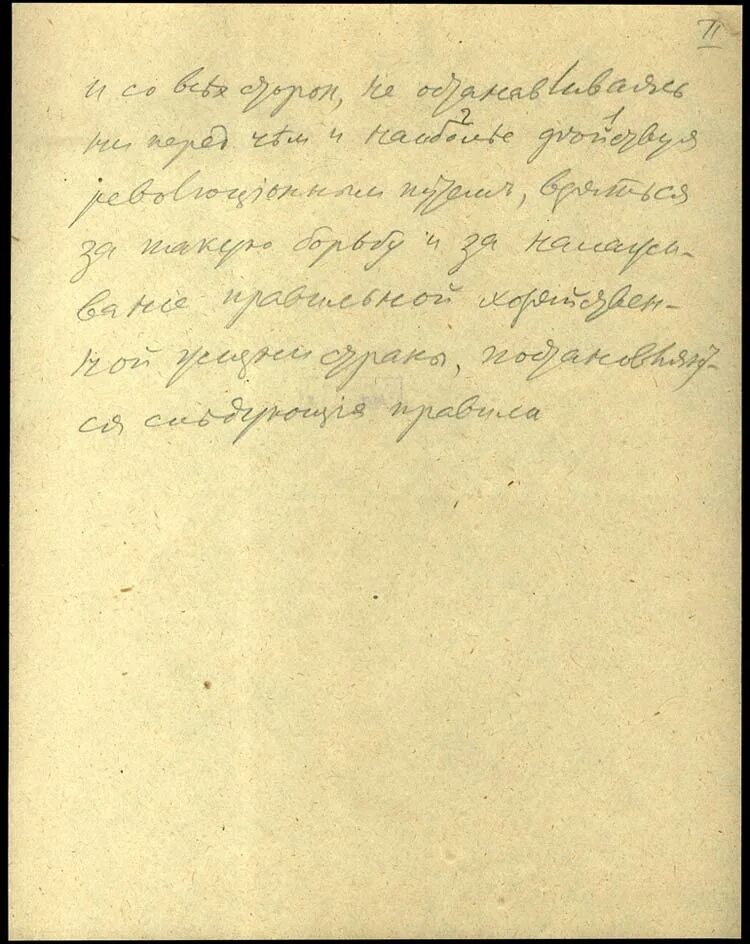 II
и со всѣх сторон, не останавливаясь
ни перед чѣм и наиболѣе дѣйствуя
революціонным путем, взяться
за такую борьбу и за налажи-
ваніе правильной хозяйствен-
ной жизни страны, постановляют-
ся слѣдующія правила